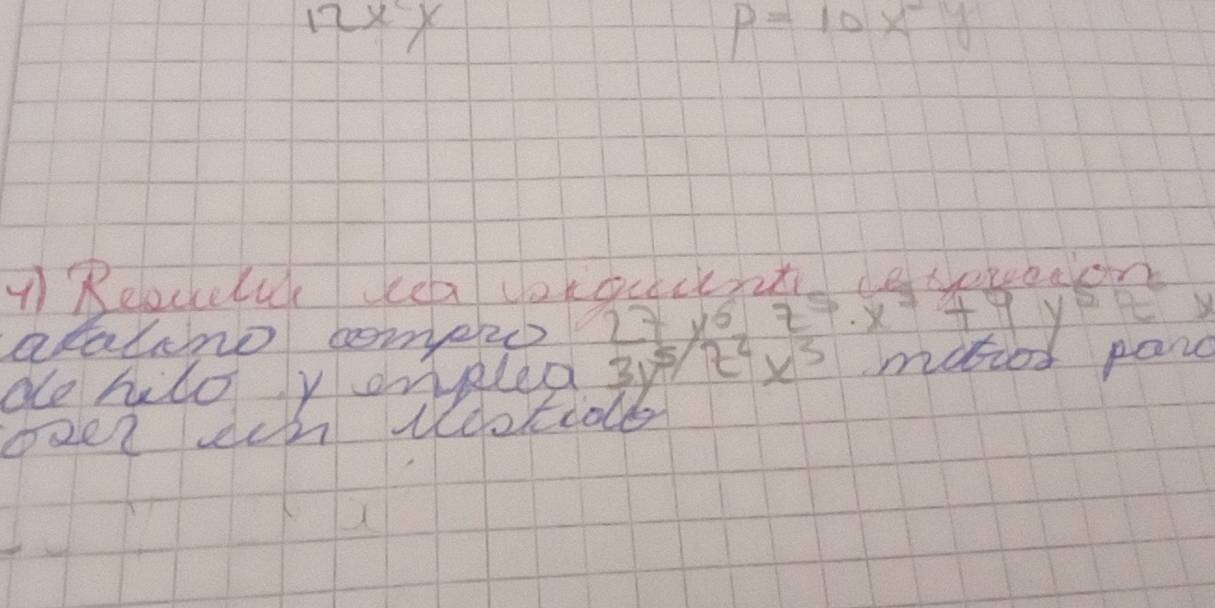 12x²y p = 10x²y
4) Resuelve la siguiente
atalino compro 27 y⁶ z⁵.x⁷ + 9 y⁵ z x
de hilo y emplea 3y⁵/z² x³ metros para
oser un Vestido